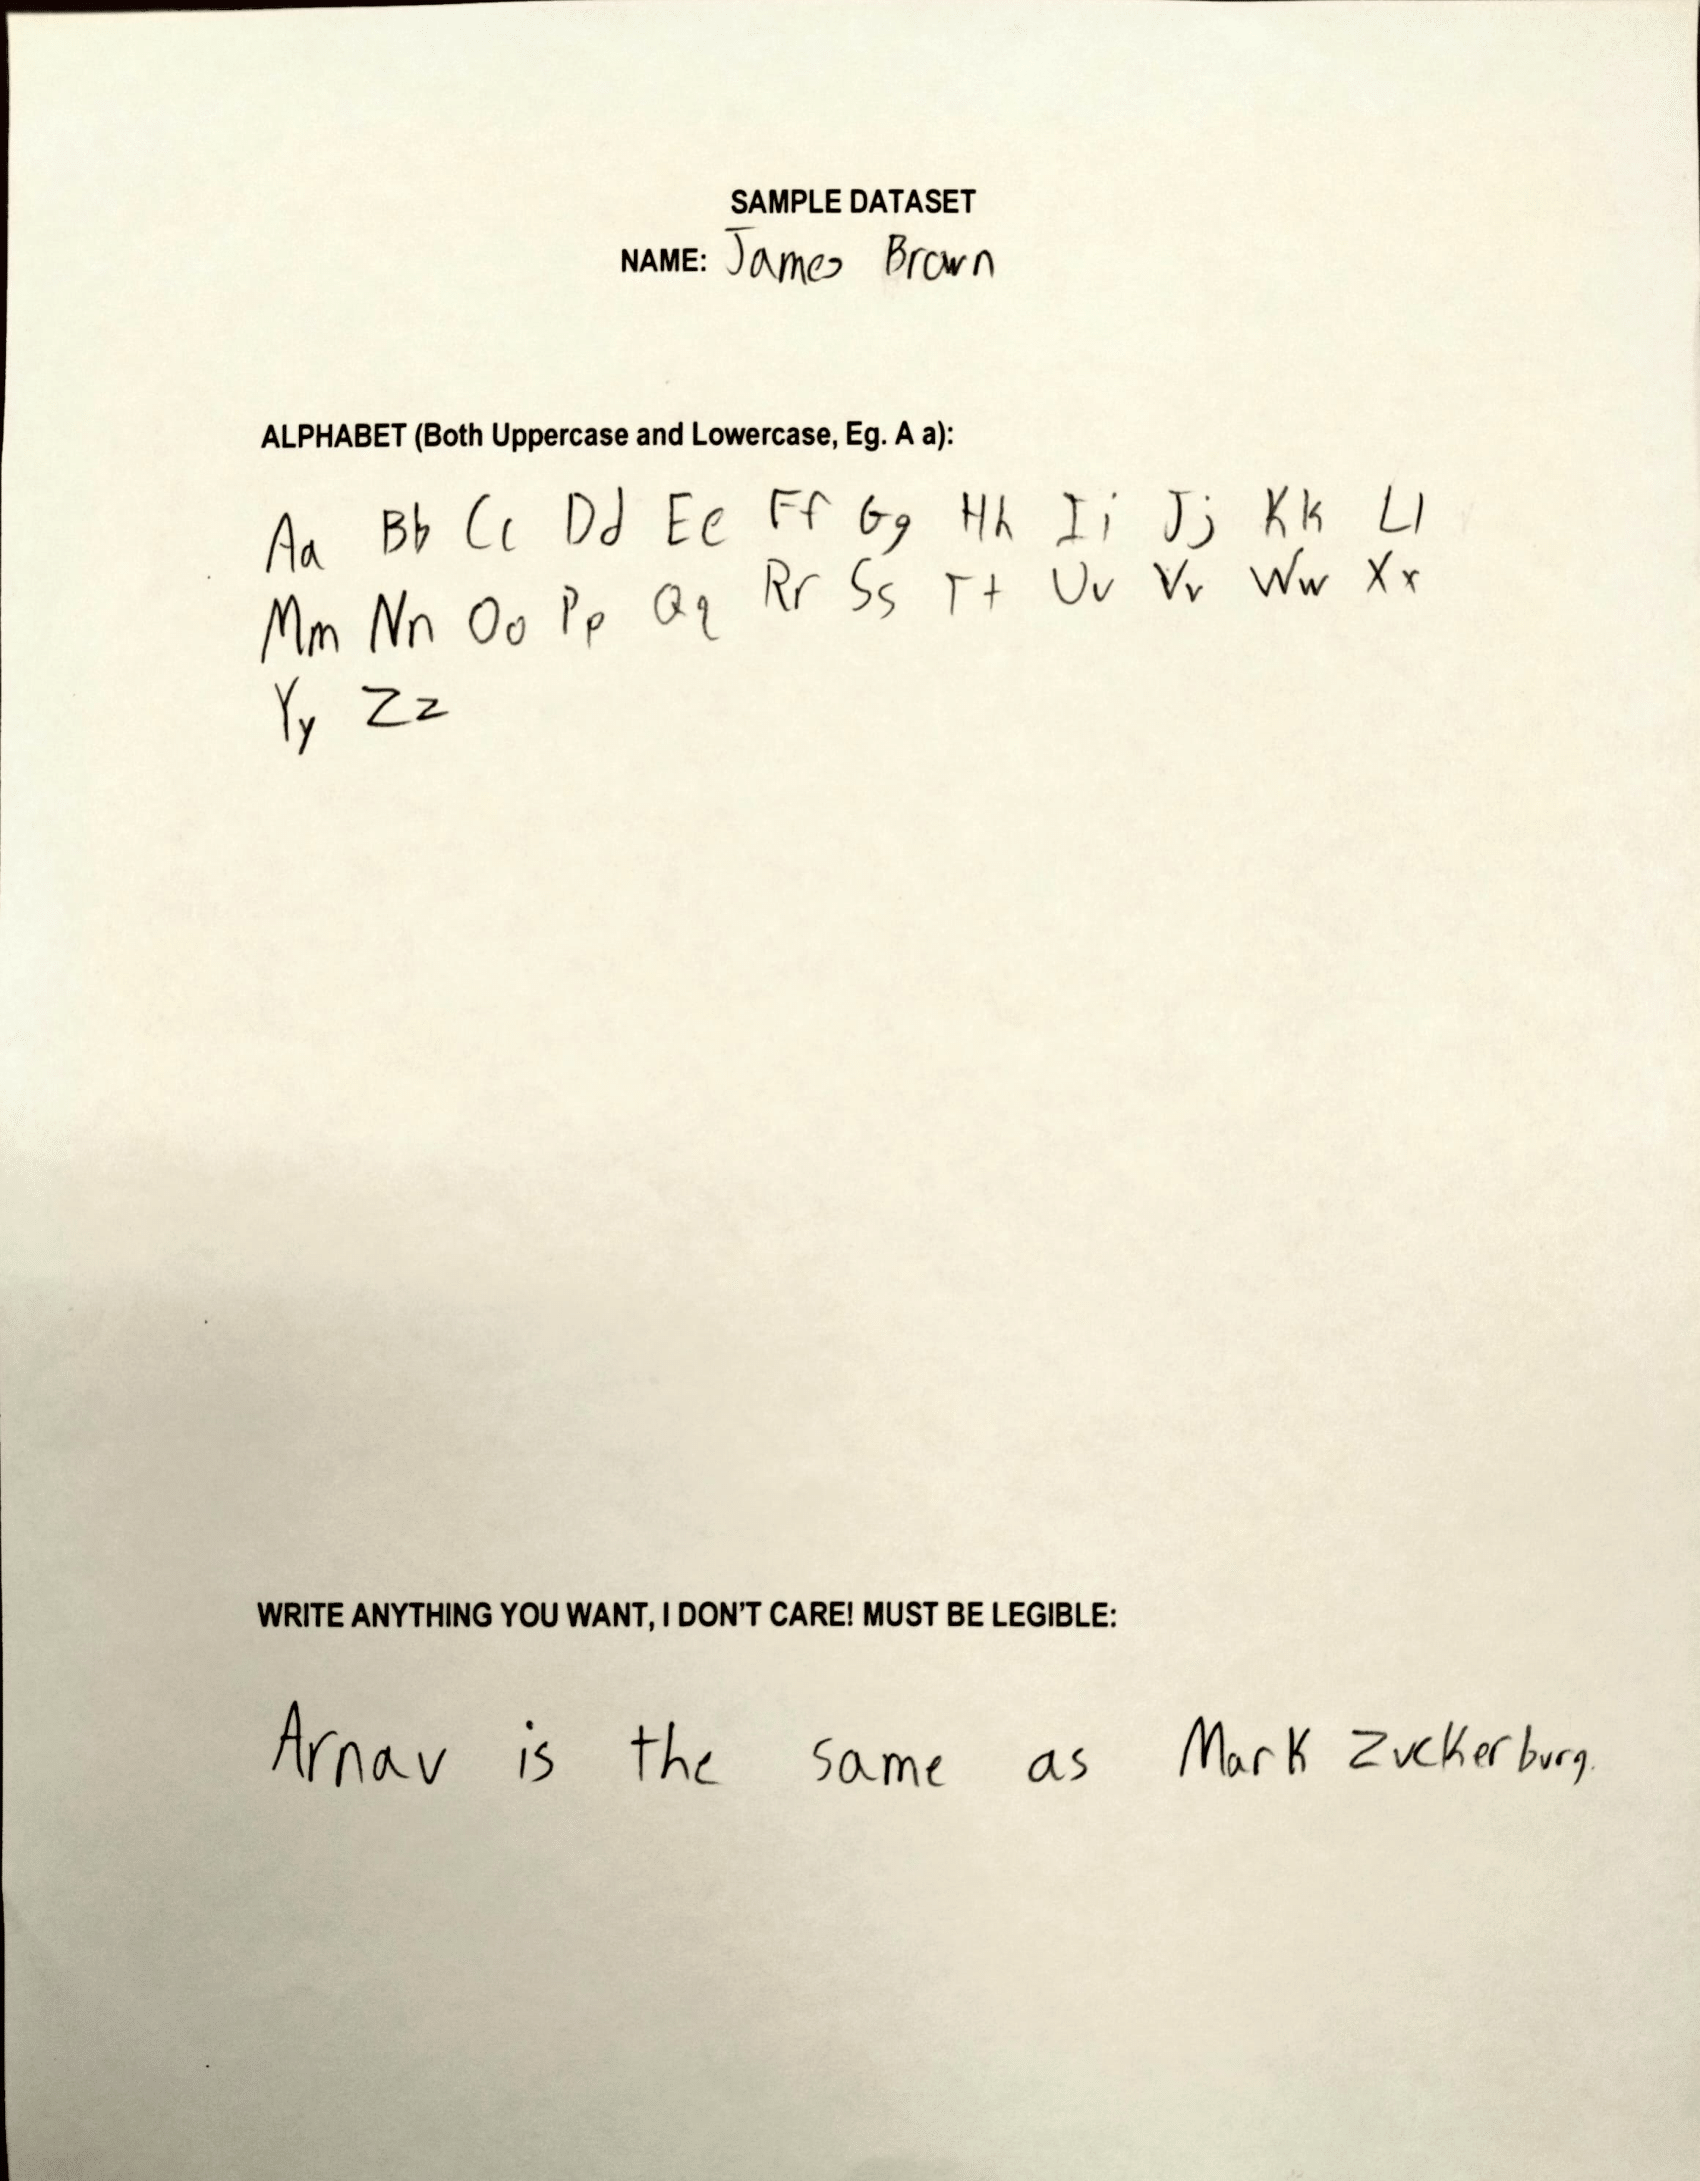 SAMPLE DATASET
NAME: James Brown
ALPHABET (Both Uppercase and Lowercase, Eg. A a):
Aa Bb Cc Dd Ee Ff Gg Hh Ii Jj Kk Ll
Mm Nn Oo Pp Qq Rr Ss Tt Uu Vv Ww Xx
Yy Zz
WRITE ANYTHING YOU WANT, I DON'T CARE! MUST BE LEGIBLE:
Arnav is the same as Mark Zuckerburg.